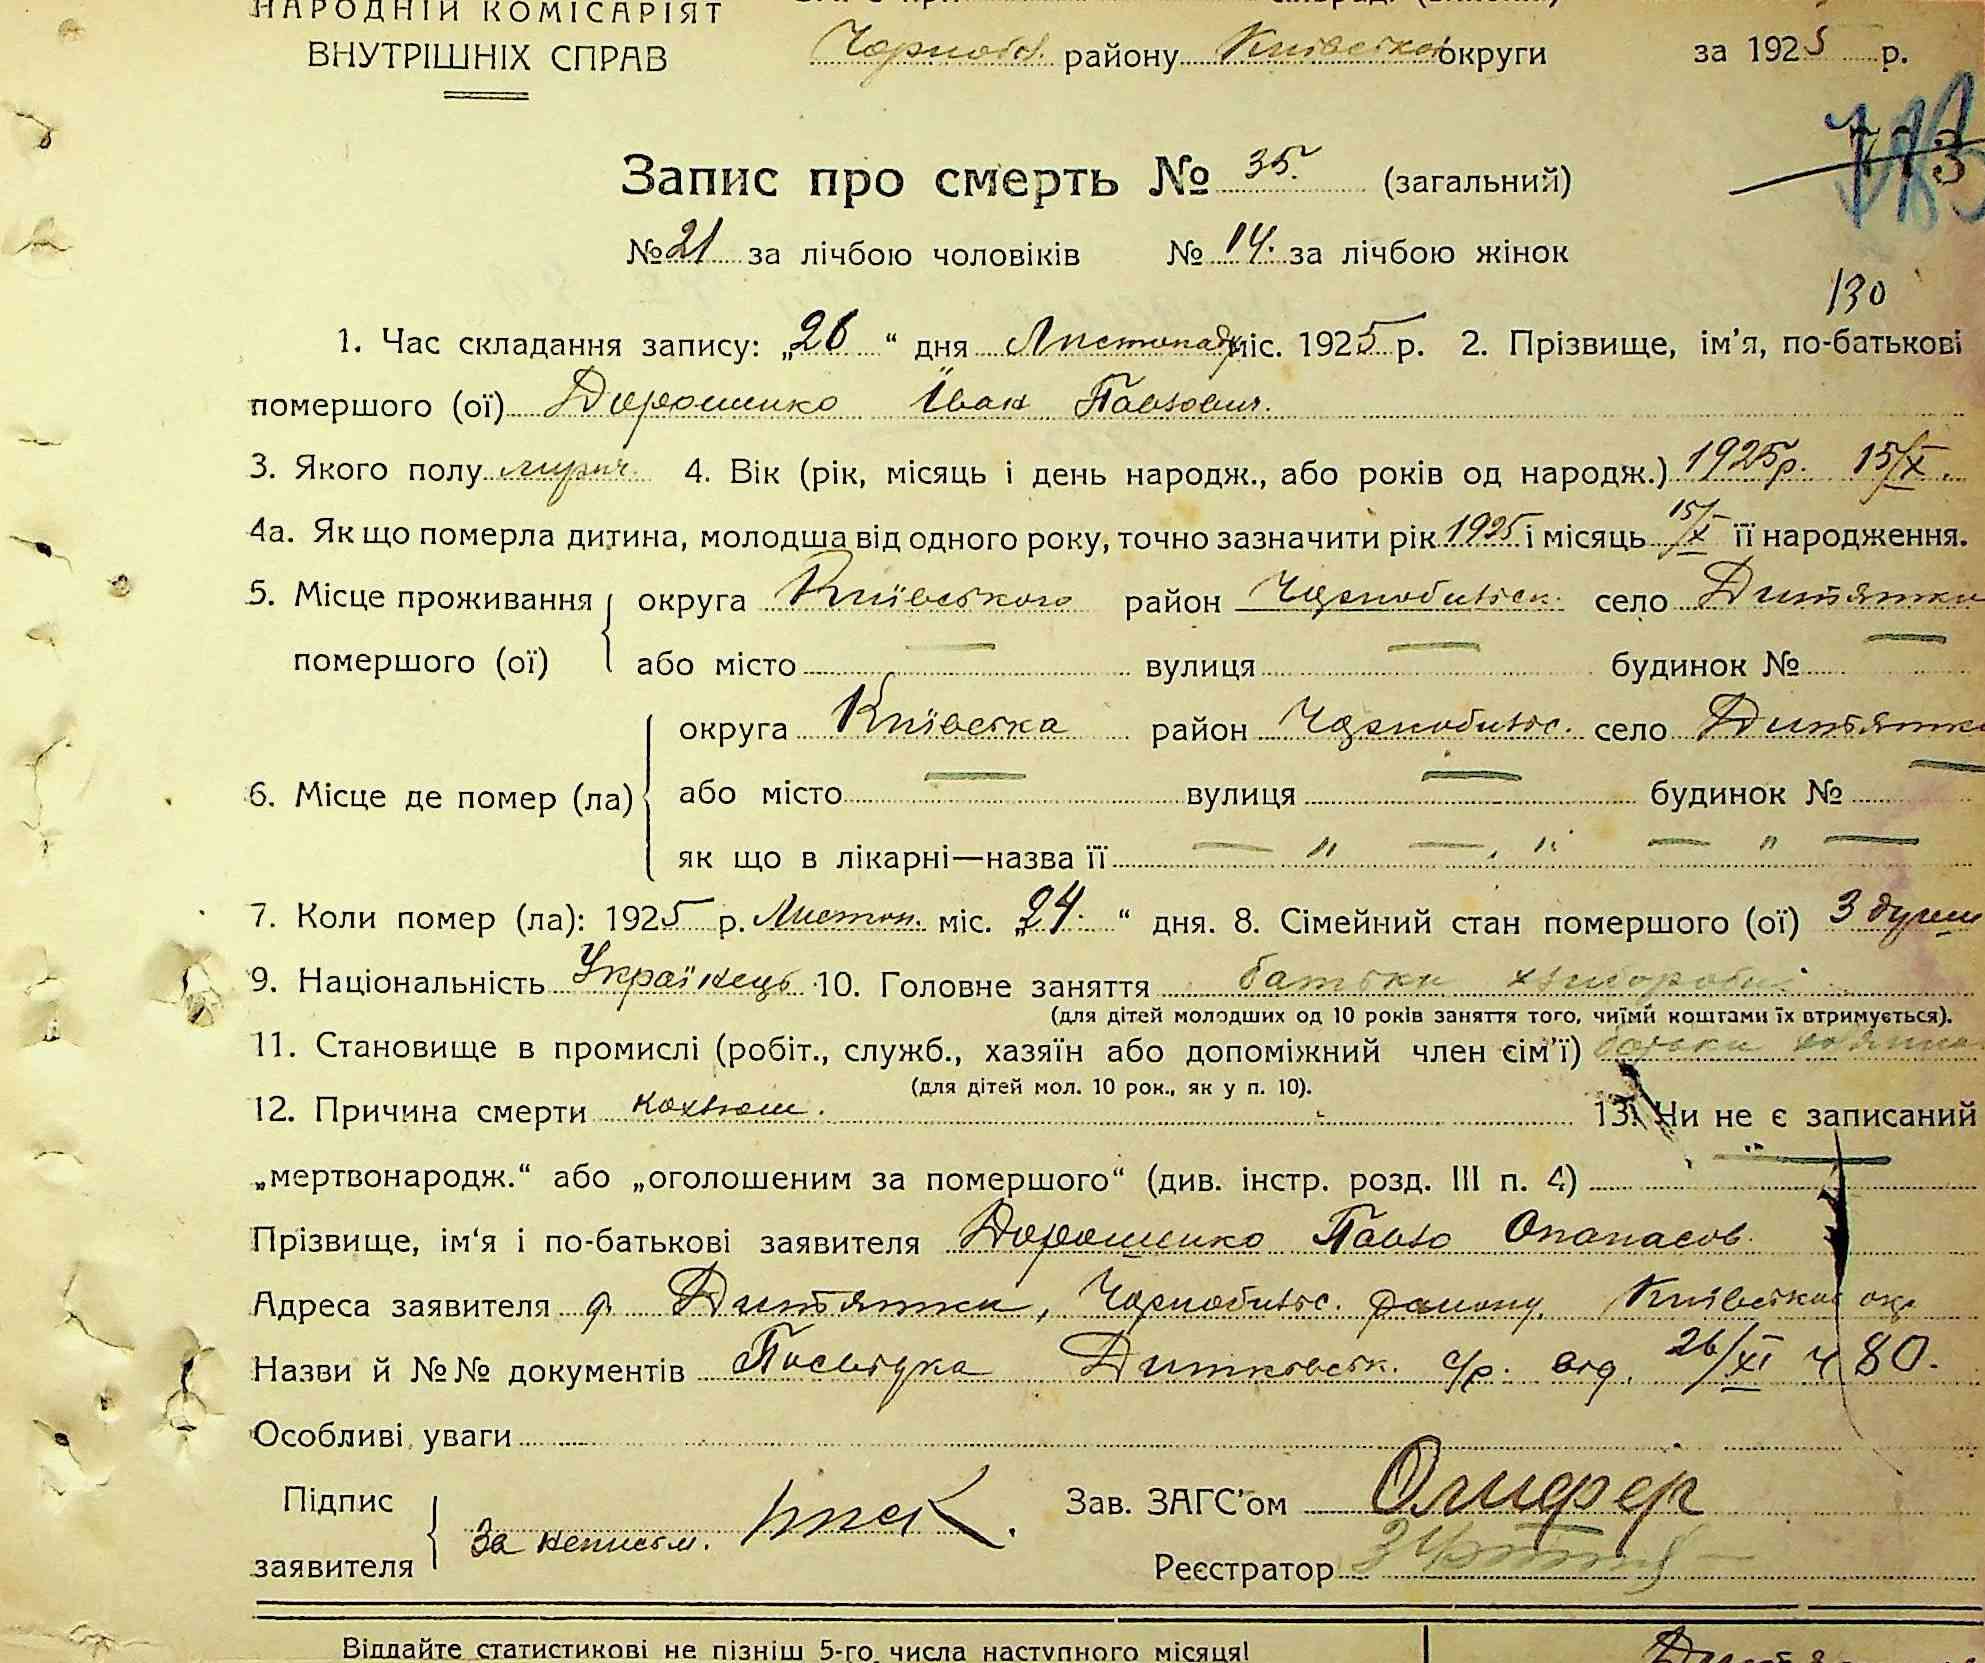 НАРОДНІЙ КОМІСАРІЯТ
ВНУТРІШНІХ СПРАВ
Чорноб. району Київської округи за 1925 р.
Запис про смерть № 35. (загальний)
№ 21 за лічбою чоловіків № 14. за лічбою жінок
130
1. Час складання запису: „26“ дня Листопаду міс. 1925 р. 2. Прізвище, ім'я, по-батькові
помершого (ої) Дорошенко Іван Павлович.
3. Якого полу 4. Вік (рік, місяць і день народж., або років од народж.) 1925р. 15/X.
4а. Як що померла дитина, молодша від одного року, точно зазначити рік 1925 і місяць 15/X її народження.
5. Місце проживання округа Київського район Чорнобильск. село Дитятки
помершого (ої) або місто — вулиця — будинок № —
округа Київська район Чорнобильс. село Дитятки
6. Місце де помер (ла) або місто — вулиця — будинок № —
як що в лікарні—назва її — „ — „ — „ —
7. Коли помер (ла): 1925 р. Листоп. міс. „24.“ дня. 8. Сімейний стан помершого (ої) 3 душі
9. Національність Українець 10. Головне заняття батьки хлібороби
(для дітей молодших од 10 років заняття того, чиїми коштами їх втримується).
11. Становище в промислі (робіт., служб., хазяїн або допоміжний член сім'ї) батьки
(для дітей мол. 10 рок., як у п. 10).
12. Причина смерти кохлюш. 13. Чи не є записаний
„мертвонародж.“ або „оголошеним за помершого“ (див. інстр. розд. III п. 4) —
Прізвище, ім'я і по-батькові заявителя Дорошенко Павло Опанасов.
Адреса заявителя Дитятки, Чорнобильс. району, Київської окр
Назви й №№ документів Посвідка Дитятківськ. с/р. від. 26/XI ч 80.
Особливі уваги
Підпис
заявителя За неписьм.
Зав. ЗАГС'ом Олифер
Реєстратор
Віддайте статистикові не пізніш 5-го числа наступного місяця!